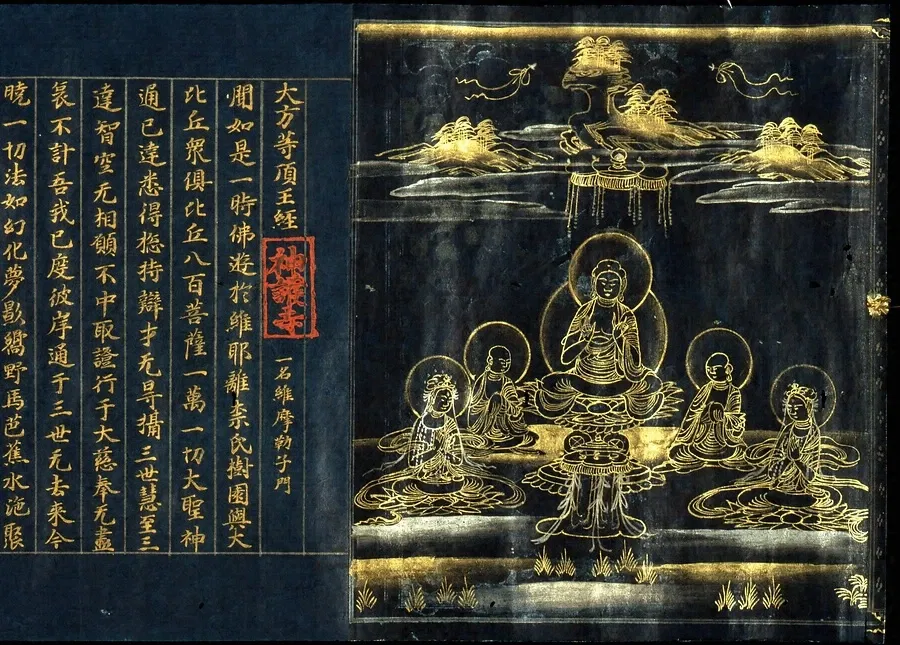 大方等頂王経
神護寺
一名維摩勒子門
聞如是一時佛遊於維耶離柰氏樹園與大
比丘衆俱比丘八百菩薩一萬一切大聖神
通已達悉得捴持辯才无㝵攝三世慧至三
達智空无相願不中取證行于大慈奉无盡
哀不計吾我已度彼岸通于三世无去来今
曉一切法如幻化夢影嚮野馬芭蕉水沫聚